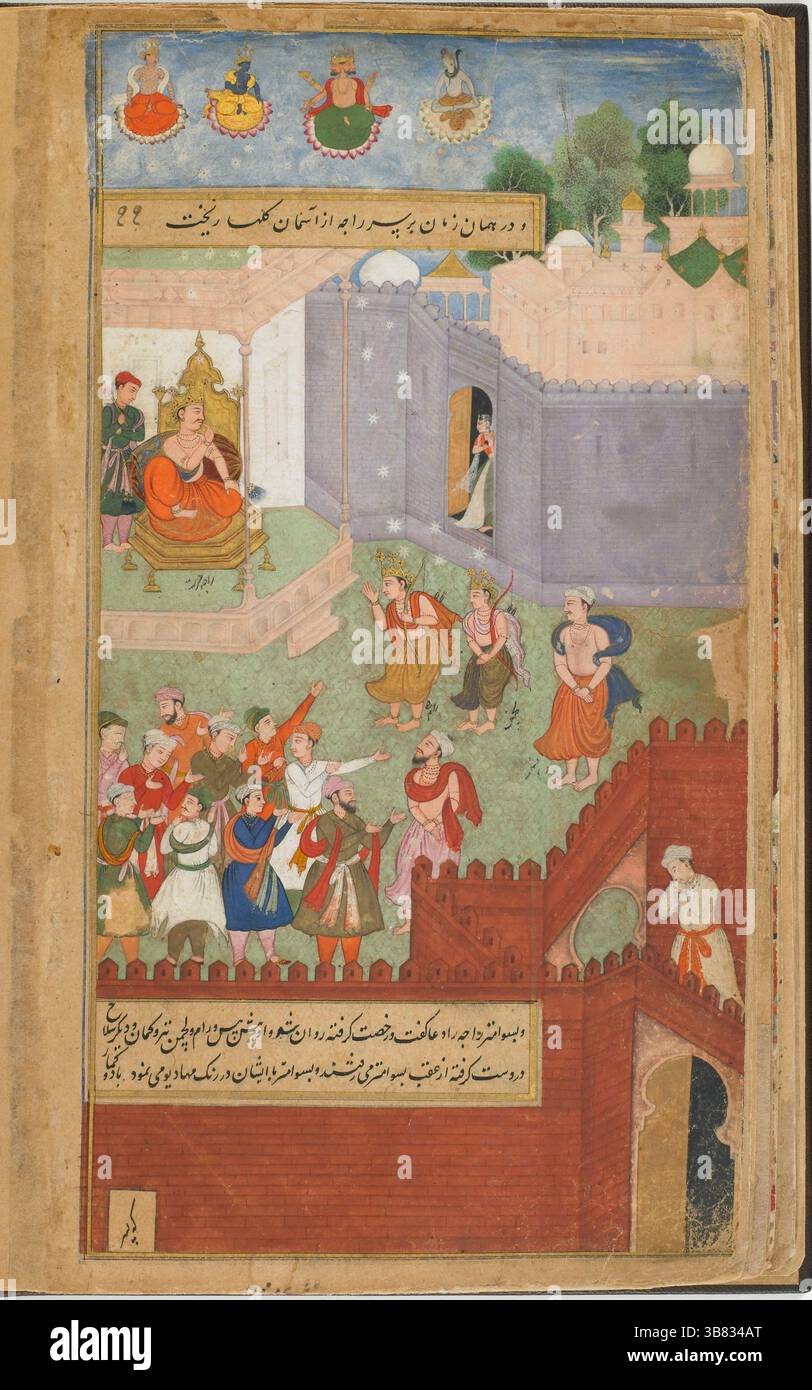 و در همان زمان بر سر راجه از آسمان کلها ریخت ۹۹
راجه جسرت
رام
لچمن
و بسوامتر راجه را دعا گفت و رخصت گرفته روان شد و از پیش پس و رام و لچمن تیر و کمان و دیگر سلاح
در دست گرفته از عقب بسوامتر می رفتند و بسوامتر با ایشان در رنگ مهادیو می نمود
alamy
alamy
Image ID: 3B834AT
www.alamy.com